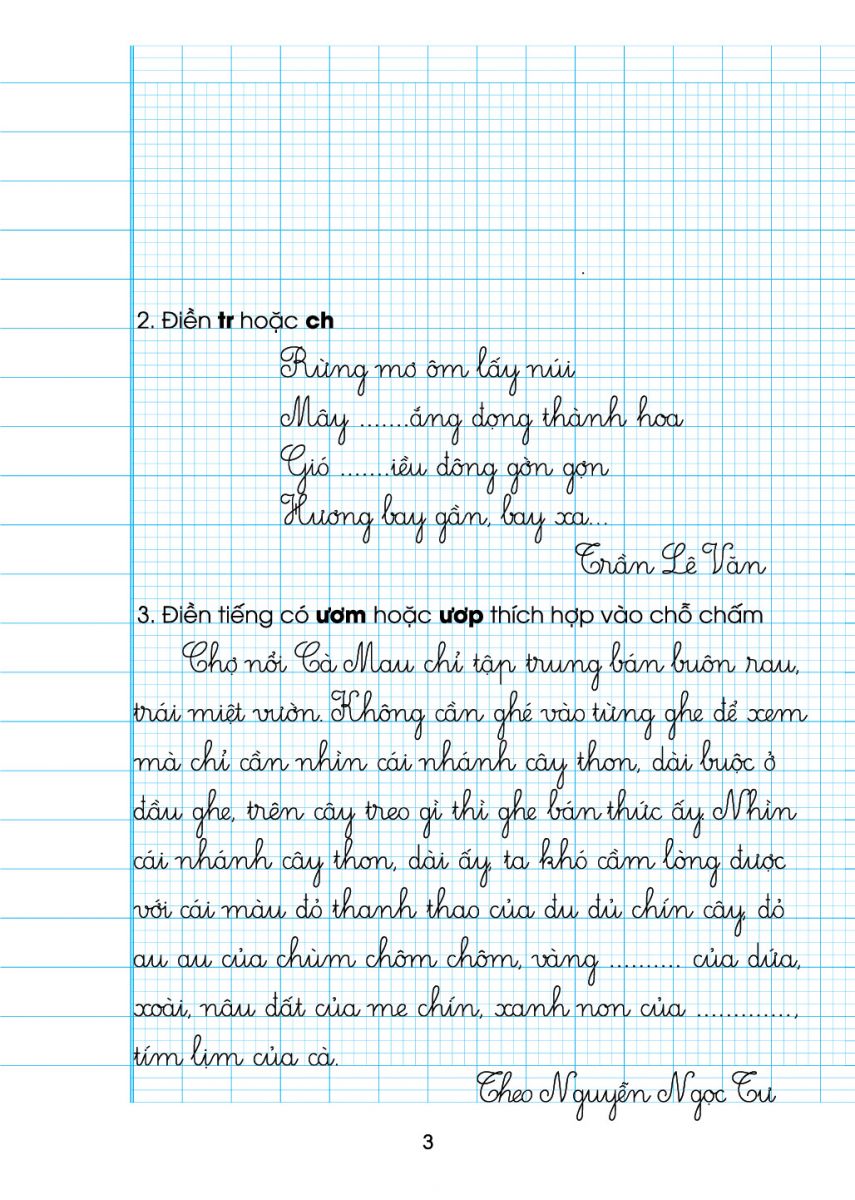 2. Điền tr hoặc ch
Rừng mơ ôm lấy núi
Mây .......ắng đọng thành hoa
Gió .......iều đông gờn gợn
Hương bay gần, bay xa...
Trần Lê Văn
3. Điền tiếng có ươm hoặc ươp thích hợp vào chỗ chấm
Chợ nổi Cà Mau chỉ tập trung bán buôn rau,
trái miệt vườn. Không cần ghé vào từng ghe để xem
mà chỉ cần nhìn cái nhánh cây thon, dài buộc ở
đầu ghe, trên cây treo gì thì ghe bán thức ấy. Nhìn
cái nhánh cây thon, dài ấy, ta khó cầm lòng được
với cái màu đỏ thanh thao của đu đủ chín cây, đỏ
au au của chùm chôm chôm, vàng .......... của dứa,
xoài, nâu đất của me chín, xanh non của .............,
tím lịm của cà.
Theo Nguyễn Ngọc Tư
3